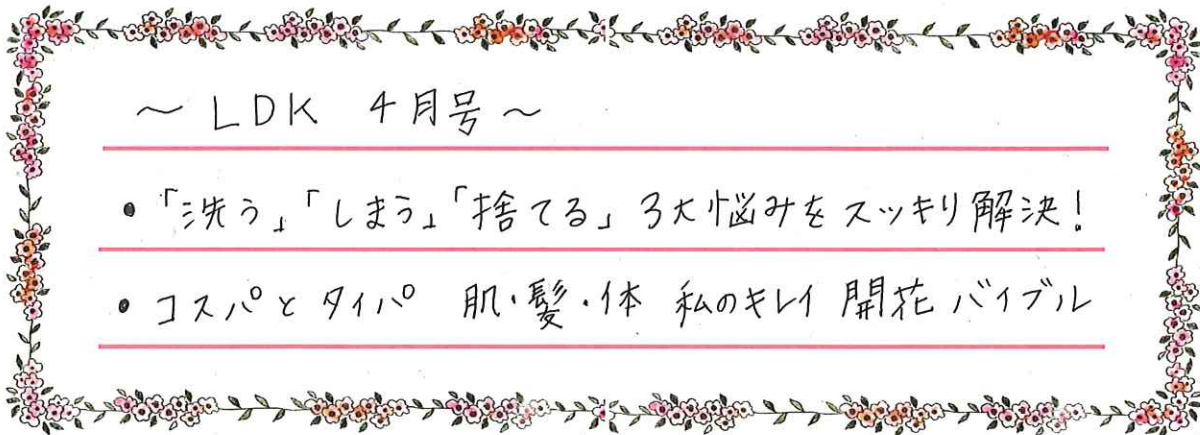 ～ LDK 4月号 ～
・「洗う」「しまう」「捨てる」3大悩みをスッキリ解決!
・コスパとタイパ 肌・髪・体 私のキレイ開花バイブル